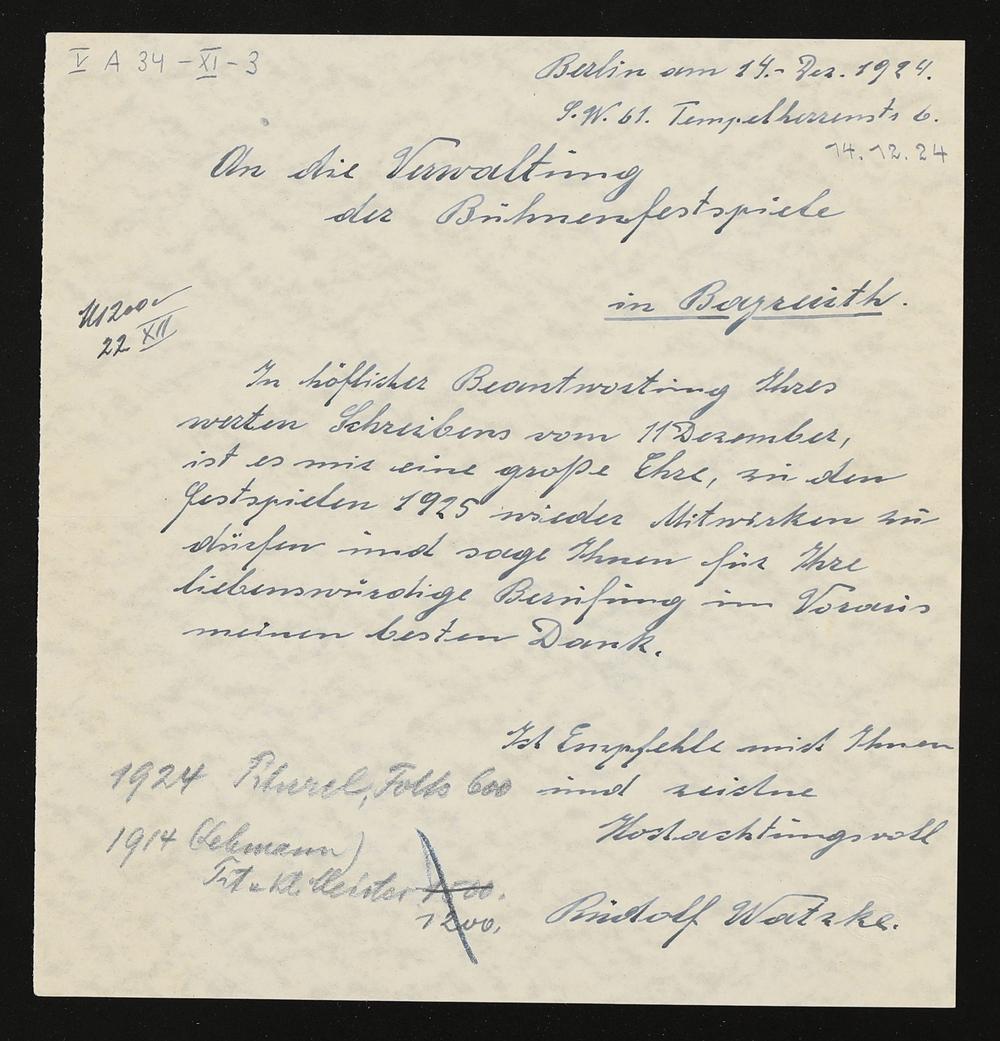 V A 34 - XI - 3
Berlin am 14.- Dez. 1924.
S.W. 61. Tempelherrenstr 6.
14.12.24
An die Verwaltung
der Bühnenfestspiele
in Bayreuth.
22 XII
In höflicher Beantwortung Ihres
werten Schreibens vom 11 Dezember,
ist es mir eine große Ehre, zu den
Festspielen 1925 wieder Mitwirken zu
dürfen und sage Ihnen für Ihre
liebenswürdige Berufung im Voraus
meinen besten Dank.
Ich Empfehle mich Ihnen
und zeichne
Hochachtungsvoll
Rudolf Watzke.
1924 Titurel, Foltz 600
1914 (Lehmann)
Tit u Kl. Meister 1500.
1200.